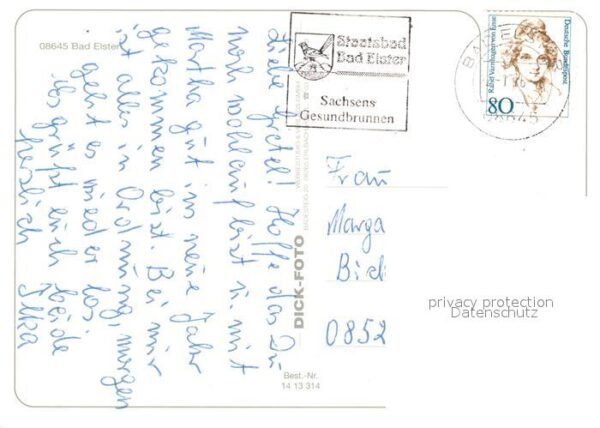 08645 Bad Elster
Liebe Gretel! Hoffe das Du
noch wohlauf bist u. mit
Martha gut ins neue Jahr
gekommen bist. Bei mir
ist alles in Ordnung, morgen
geht es wieder los.
Es grüßt euch beide
herzlich Ilka
DICK-FOTO
Best.-Nr.
14 13 314
Staatsbad
Bad Elster
Sachsens
Gesundbrunnen
Deutsche Bundespost
Rahel Varnhagen von Ense
80
Frau
Marga
0852
privacy protection
Datenschutz